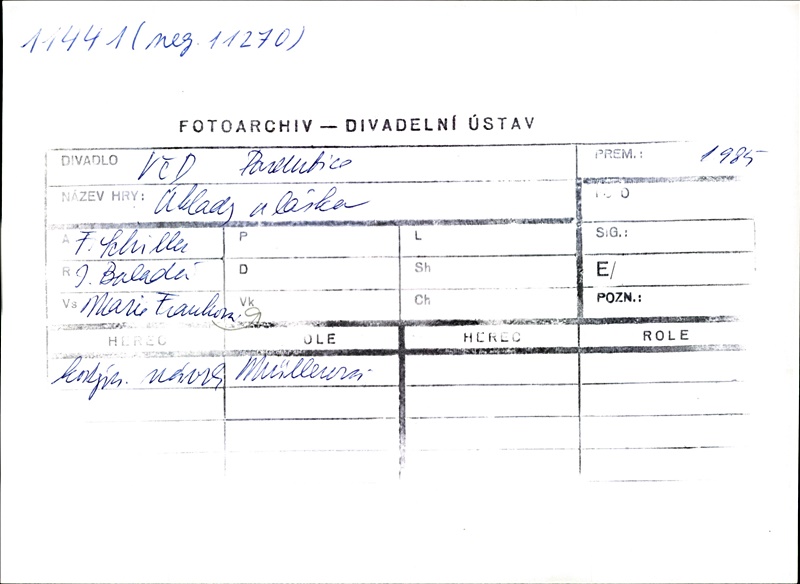 11441 (neg. 11270)
FOTOARCHIV — DIVADELNÍ ÚSTAV
DIVADLO VČD Pardubice PREM.: 1985
NÁZEV HRY: Úklady a láska FOTO
A F. Schiller P L SIG.:
R J. D Sh E/
Vs Marie Franková Vk Ch POZN.:
HEREC ROLE HEREC ROLE
kostým. návrh Müllerová